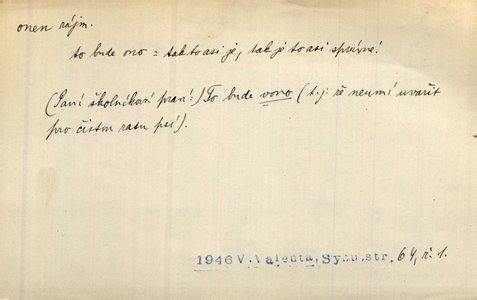 onen zájm.
to bude ono = tak to asi je, tak je to asi správné!
(Paní školníková praví:) To bude vono (t.j. že neumí uvařit
pro čistou rasu psí).
1946 V. Valenta, Sypu. str. 64, ř. 1.